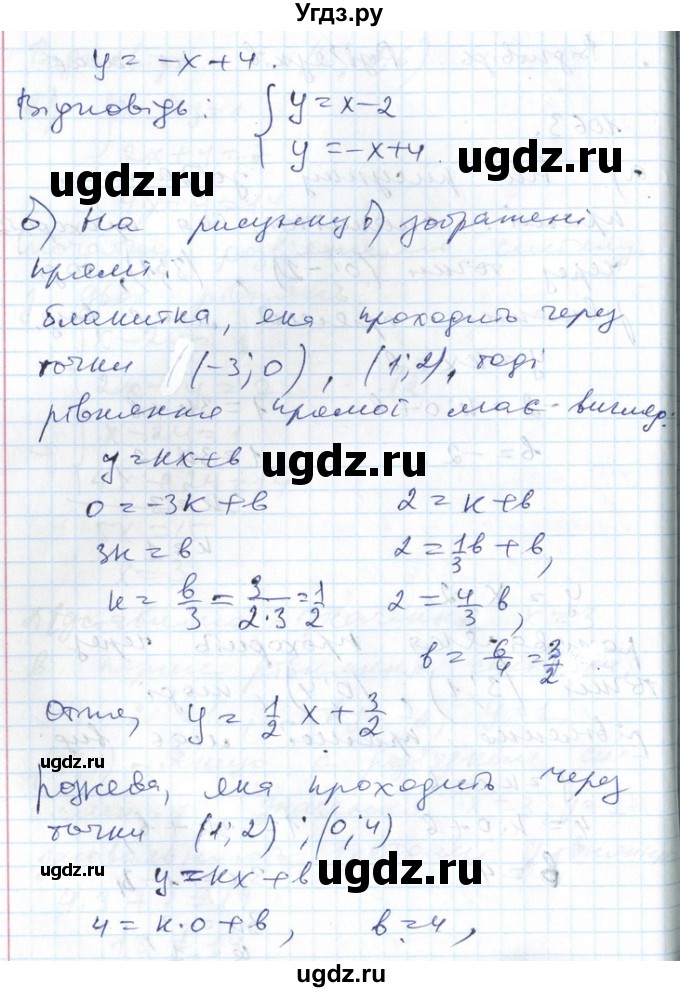 Угдз.ру
y = -x + 4.
Відповідь: { y = x - 2
y = -x + 4.
ugdz.ru ugdz.ru
б) На рисунку б) зображені
прямі:
блакитна, яка проходить через
ugdz.ru
точки (-3; 0), (1; 2), тоді
рівняння прямої має вигляд:
y = kx + b
ugdz.ru
0 = -3k + b 2 = k + b
3k = b 2 = 1/3 b + b,
k = b/3 = 3/(2·3) = 1/2 2 = 4/3 b,
ugdz.ru
b = 6/4 = 3/2.
Отже, y = 1/2 x + 3/2
ugdz.ru ugdz.ru
рожева, яка проходить через
точки (1; 2); (0; 4)
ugdz.ru
y = kx + b
4 = k·0 + b, b = 4,
ugdz.ru